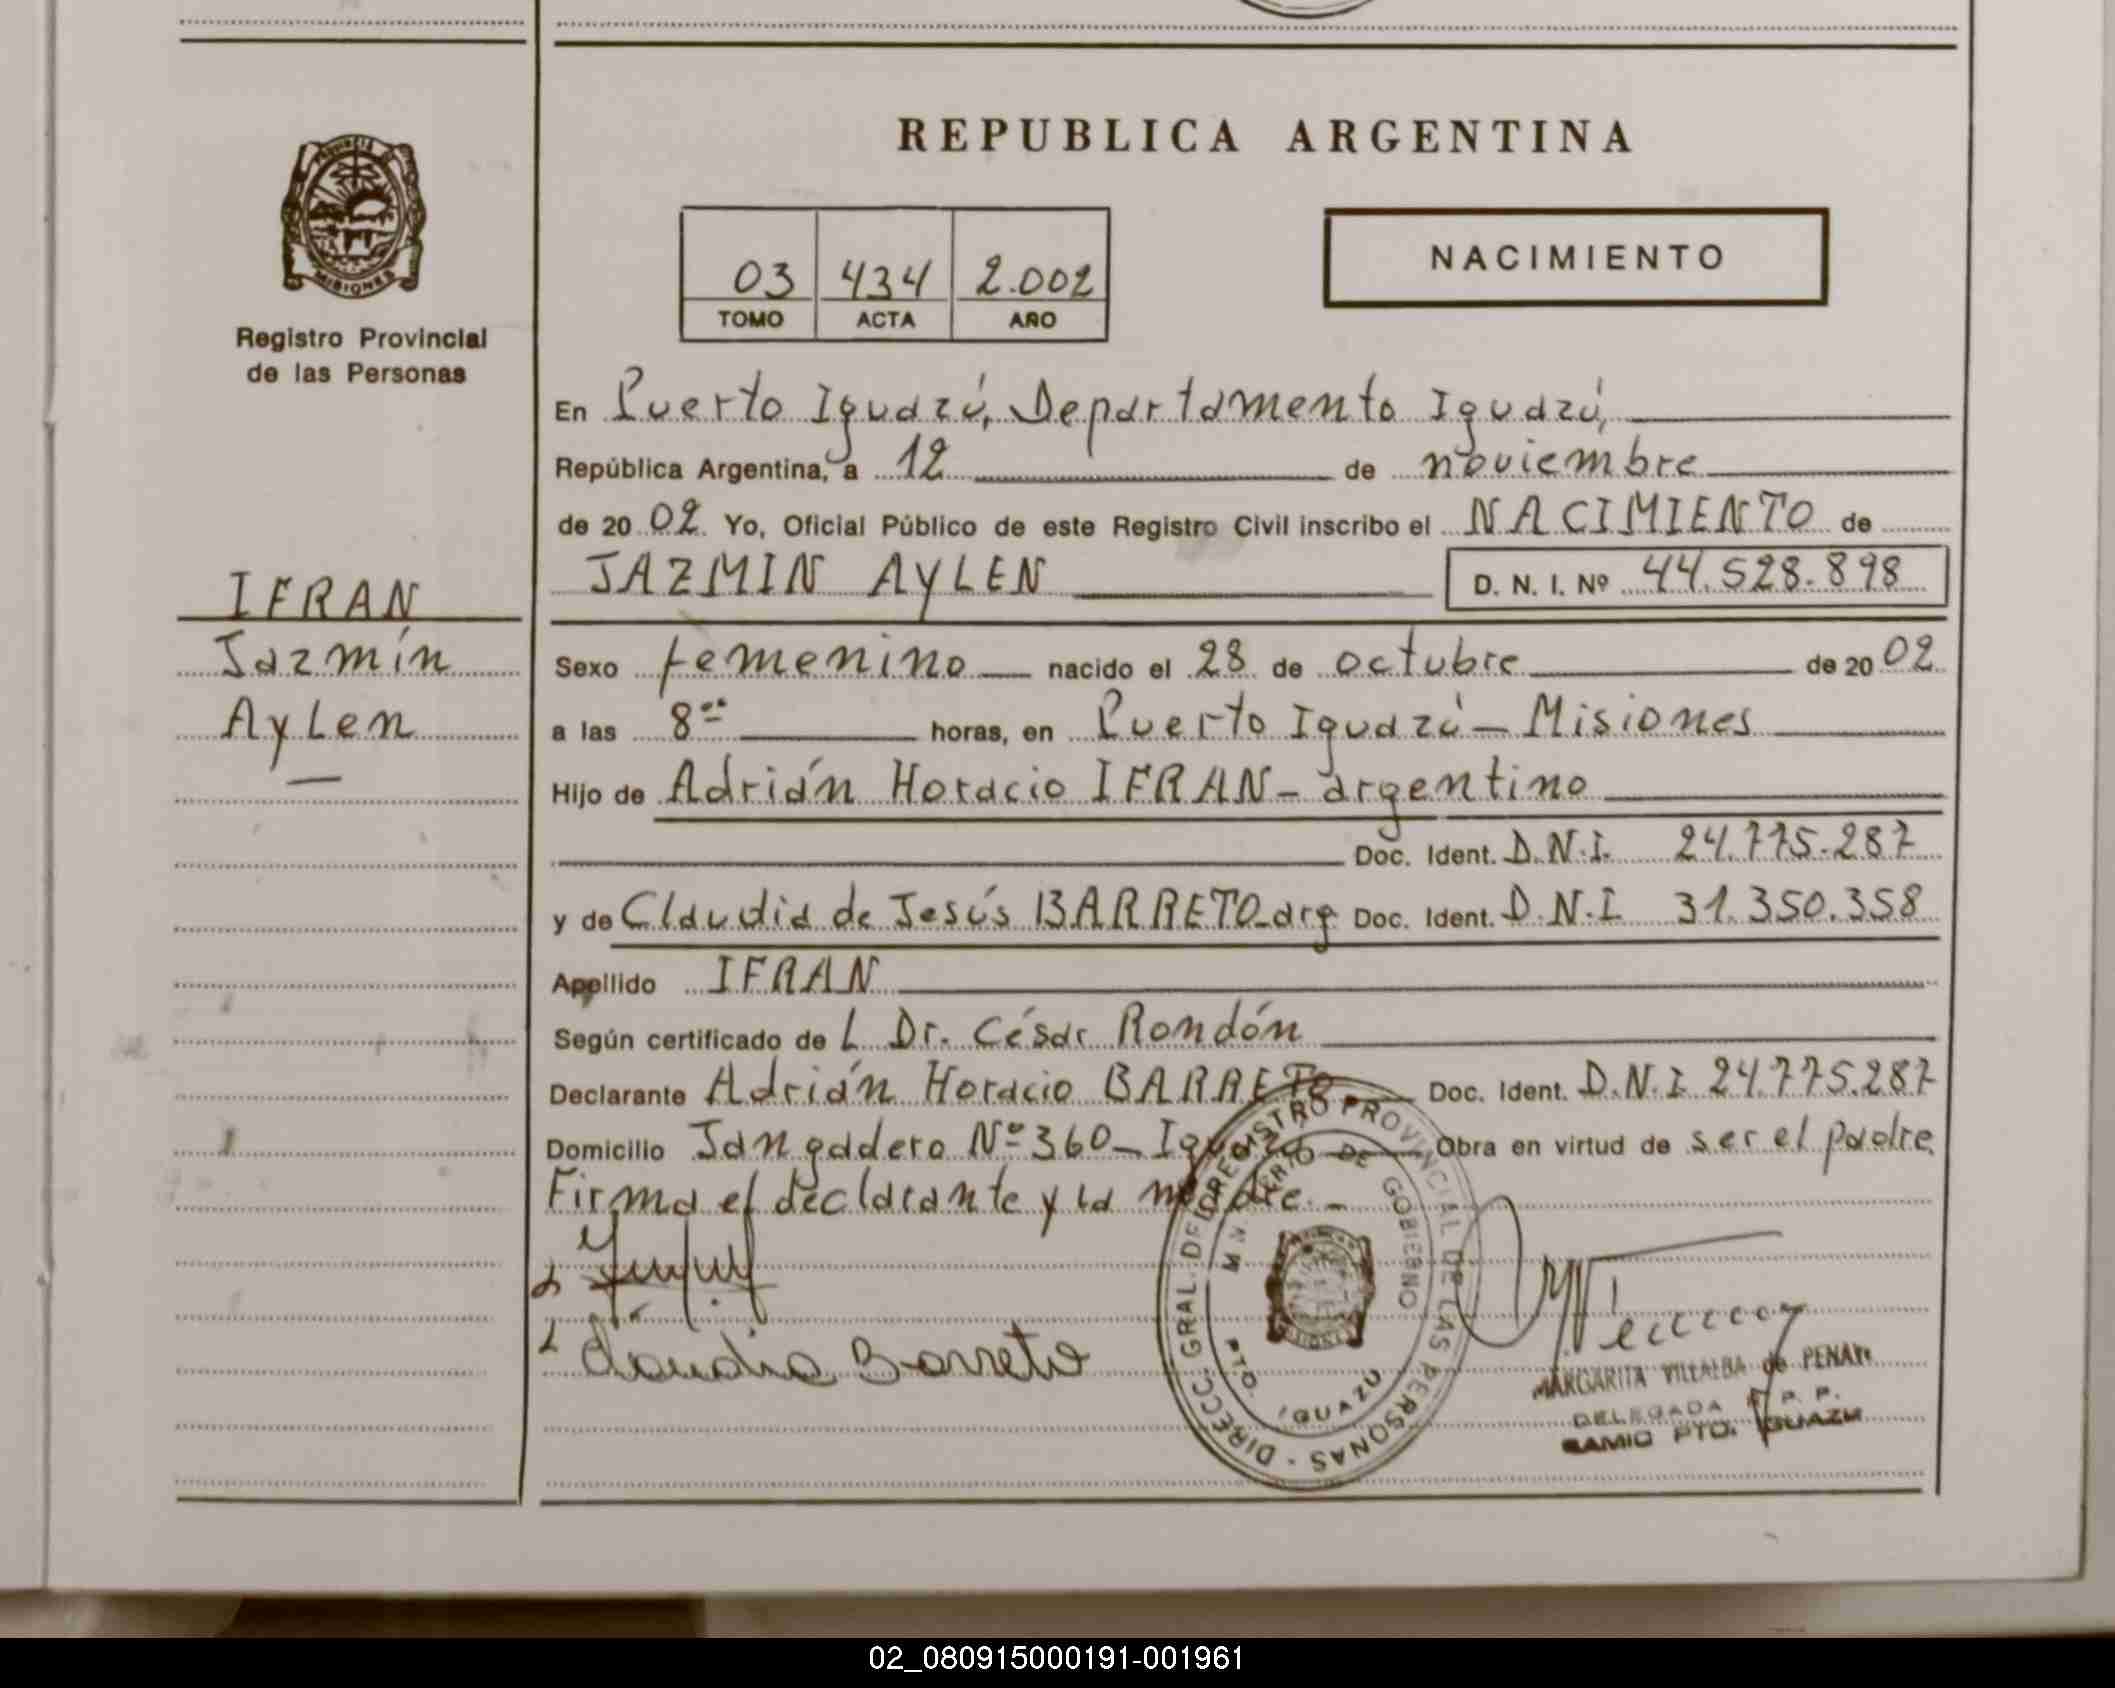 PROVINCIA DE
MISIONES
Registro Provincial
de las Personas
IFRAN
Jazmín
Aylen
REPUBLICA ARGENTINA
03 434 2.002
TOMO ACTA AÑO
NACIMIENTO
En Puerto Iguazú, Departamento Iguazú,
República Argentina, a 12 de noviembre
de 20 02 Yo, Oficial Público de este Registro Civil inscribo el NACIMIENTO de
JAZMIN AYLEN D. N. I. Nº 44.528.898
Sexo femenino nacido el 28 de octubre de 20 02
a las 8 horas, en Puerto Iguazú - Misiones
Hijo de Adrián Horacio IFRAN - argentino
Doc. Ident. D.N.I. 24.775.287
y de Claudia de Jesús BARRETO - arg. Doc. Ident. D.N.I 31.350.358
Apellido IFRAN
Según certificado de L Dr. César Rondón
Declarante Adrián Horacio BARRETO Doc. Ident. D.N.I. 24.775.287
Domicilio Jangadero Nº 360 - Iguazú Obra en virtud de ser el padre.
Firma el declarante y la madre. -
Claudia Barreto
DIRECC. GRAL. DEL REGISTRO PROVINCIAL DE LAS PERSONAS
DE GOBIERNO
PTO. IGUAZU
MARGARITA VILLALBA de
DELEGADA R. P. P.
PTO. IGUAZU
02_080915000191-001961